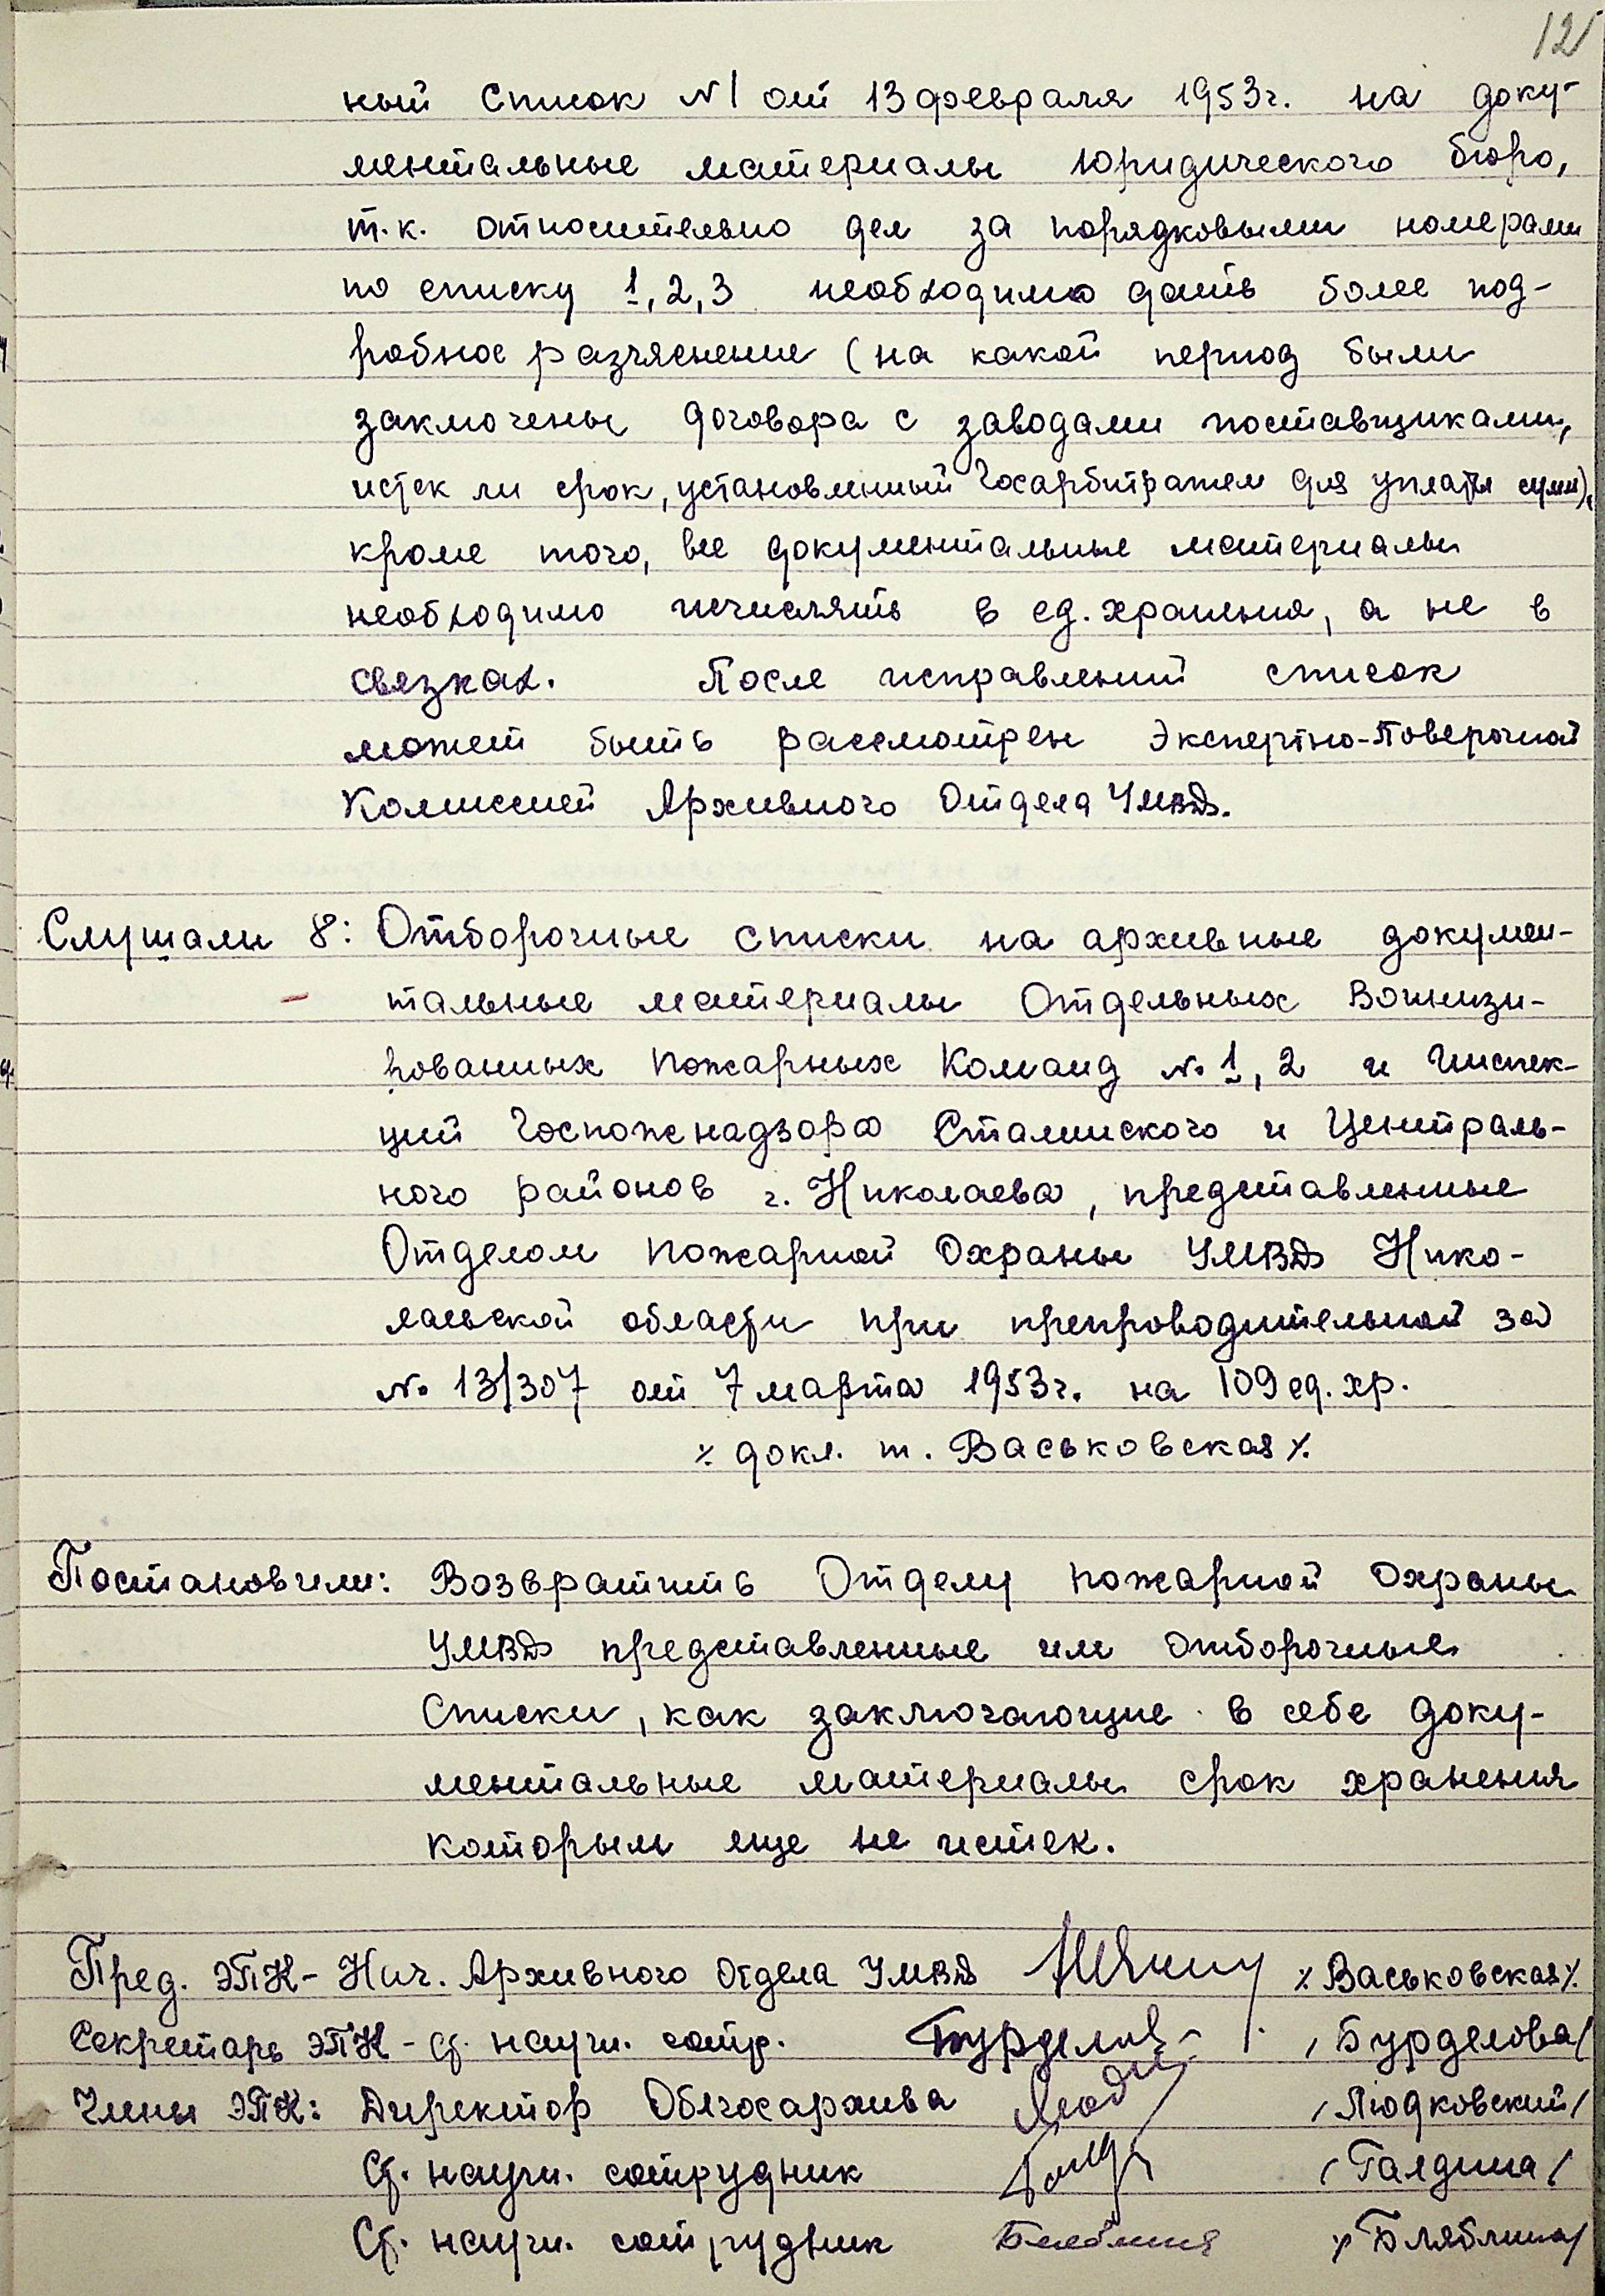 12
ный список №1 от 13 февраля 1953г. на доку-
ментальные материалы юридического бюро,
т.к. относительно дел за порядковыми номерами
по списку 1, 2, 3 необходимо дать более под-
робное разъяснение (на какой период были
заключены договора с заводами поставщиками,
истек ли срок, установленный Госарбитражем для уплаты сумм),
кроме того, все документальные материалы
необходимо исчислять в ед. хранения, а не в
связках. После исправлений список
может быть рассмотрен Экспертно-Поверочной
Комиссией Архивного Отдела УМВД.
Слушали 8: Отборочные списки на архивные докумен-
тальные материалы Отдельных Военизи-
рованных Пожарных Команд № 1, 2 и Инспек-
ций Госпожнадзора Сталинского и Централь-
ного районов г. Николаева, представленные
Отделом Пожарной Охраны УМВД Нико-
лаевской области при препроводительной за
№ 13/307 от 7 марта 1953г. на 109 ед. хр.
⁒ докл. т. Васьковская ⁒.
Постановили: Возвратить Отделу пожарной охраны
УМВД представленные им отборочные
списки, как заключающие в себе доку-
ментальные материалы срок хранения
которым еще не истек.
Пред. ЭПК - Нач. Архивного отдела УМВД ⁒ Васьковская ⁒
Секретарь ЭПК - Ст. научн. сотр. / Бурделова /
Члены ЭПК: Директор Облгосархива / Людковский /
Ст. научн. сотрудник / Галдина /
Ст. научн. сотрудник / Бляблина /